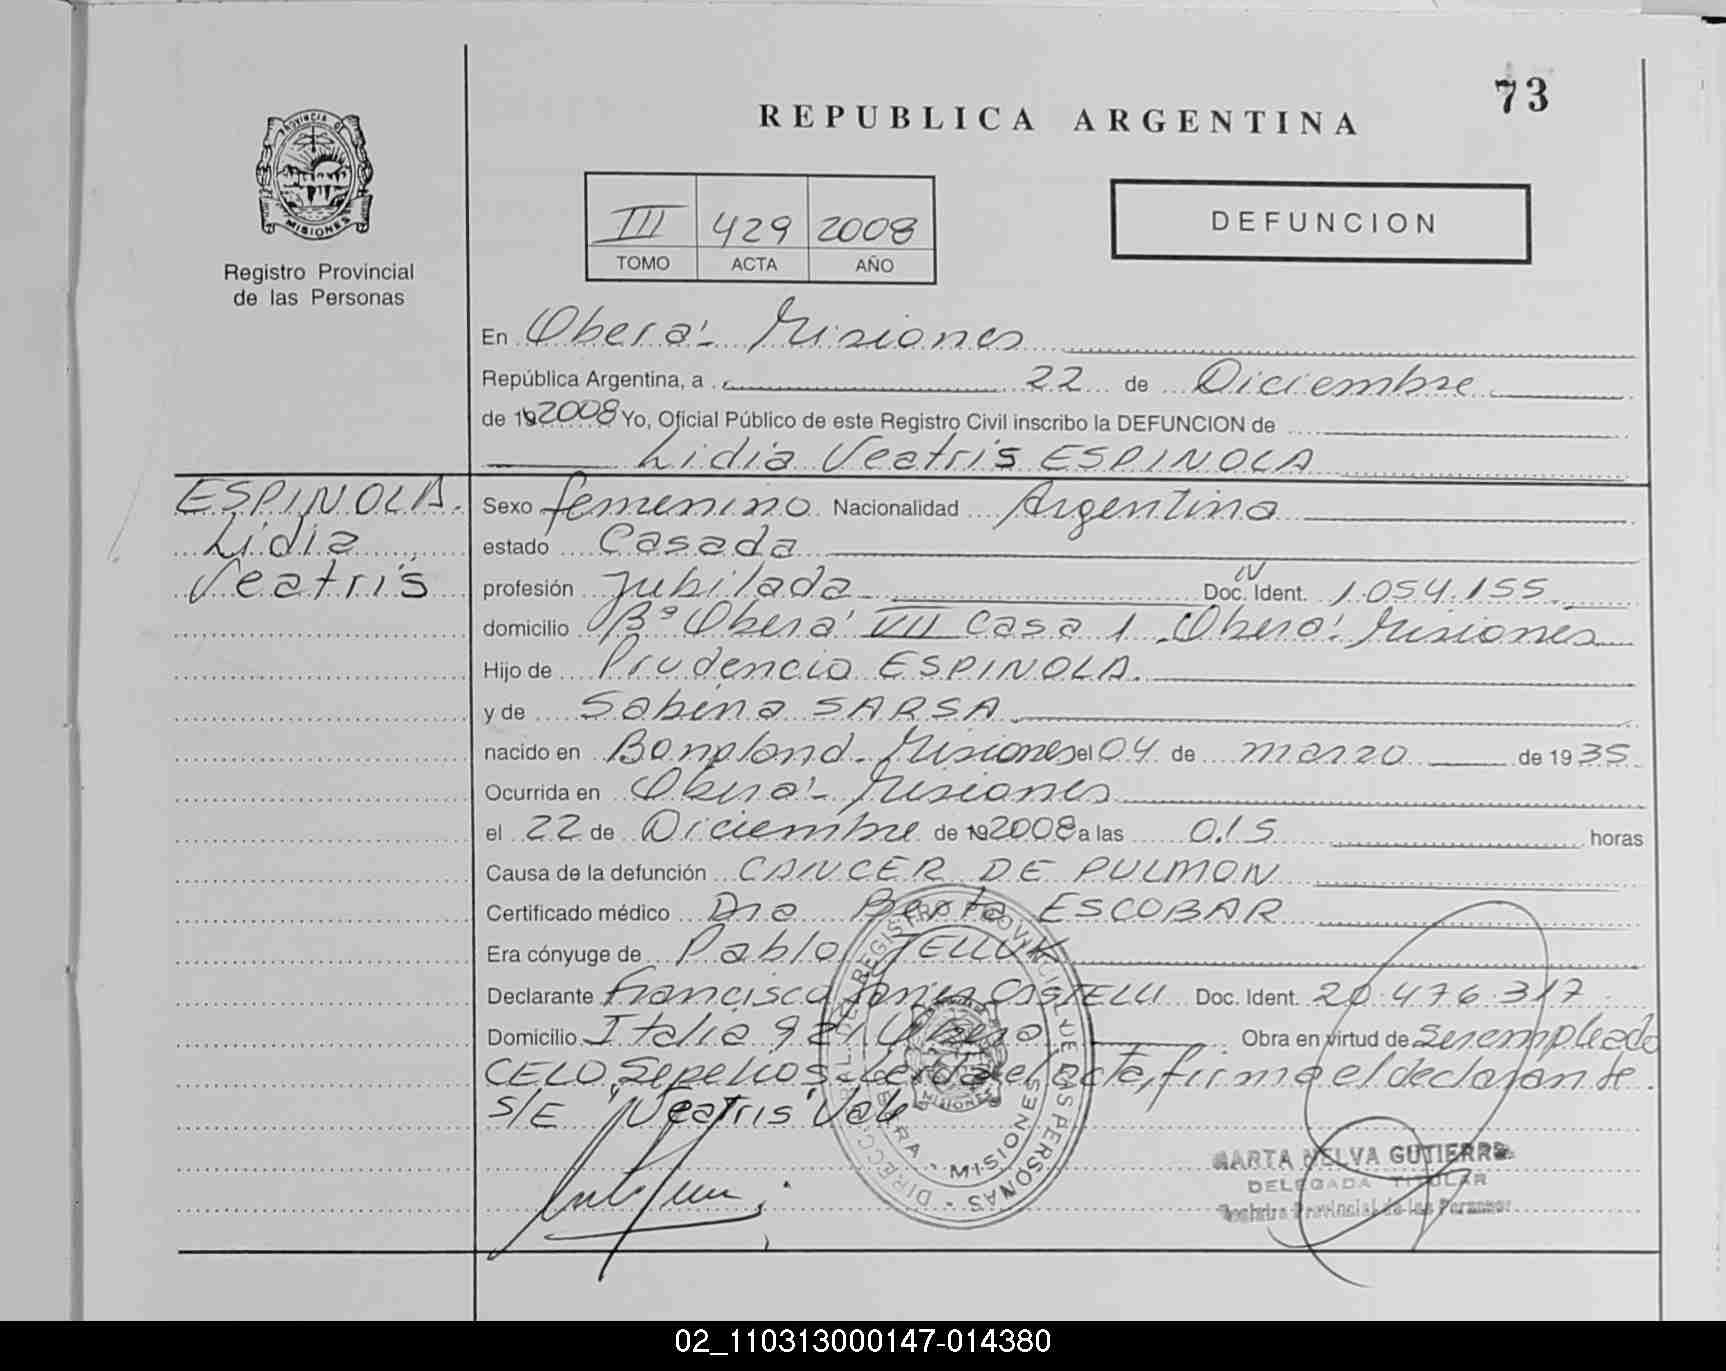 73
REPUBLICA ARGENTINA
PROVINCIA DE
MISIONES
Registro Provincial
de las Personas
III 429 2008
TOMO ACTA AÑO
DEFUNCION
En Oberá - Misiones
República Argentina, a 22 de Diciembre
de 19 2008 Yo, Oficial Público de este Registro Civil inscribo la DEFUNCION de
Lidia Veatris ESPINOLA
ESPINOLA.
Lidia
Veatris
Sexo femenino Nacionalidad Argentina
estado Casada
profesión Jubilada Doc. Ident. 1.054.155
domicilio Bº Oberá VII Casa 1 Oberá Misiones
Hijo de Prudencio ESPINOLA.
y de Sabina SARSA
nacido en Bonpland - Misiones el 04 de marzo de 1935
Ocurrida en Oberá - Misiones
el 22 de Diciembre de 19 2008 a las 0.15 horas
Causa de la defunción CANCER DE PULMON
Certificado médico Dra Berta ESCOBAR
Era cónyuge de Pablo JELLUK
Declarante Francisco CASTELLI Doc. Ident. 20.476.317
Domicilio Italia 921 Oberá Obra en virtud de ser empleado
CELO, Sepelios Leida el acta, firma el declarante.
S/E "Veatris" Vale
DIRECCION GRAL. DEL REGISTRO PROVINCIAL DE LAS PERSONAS
OBERA - MISIONES
MISIONES
MARTA NELVA GUTIERREZ
DELEGADA TITULAR
Registro Provincial de las Personas
02_110313000147-014380